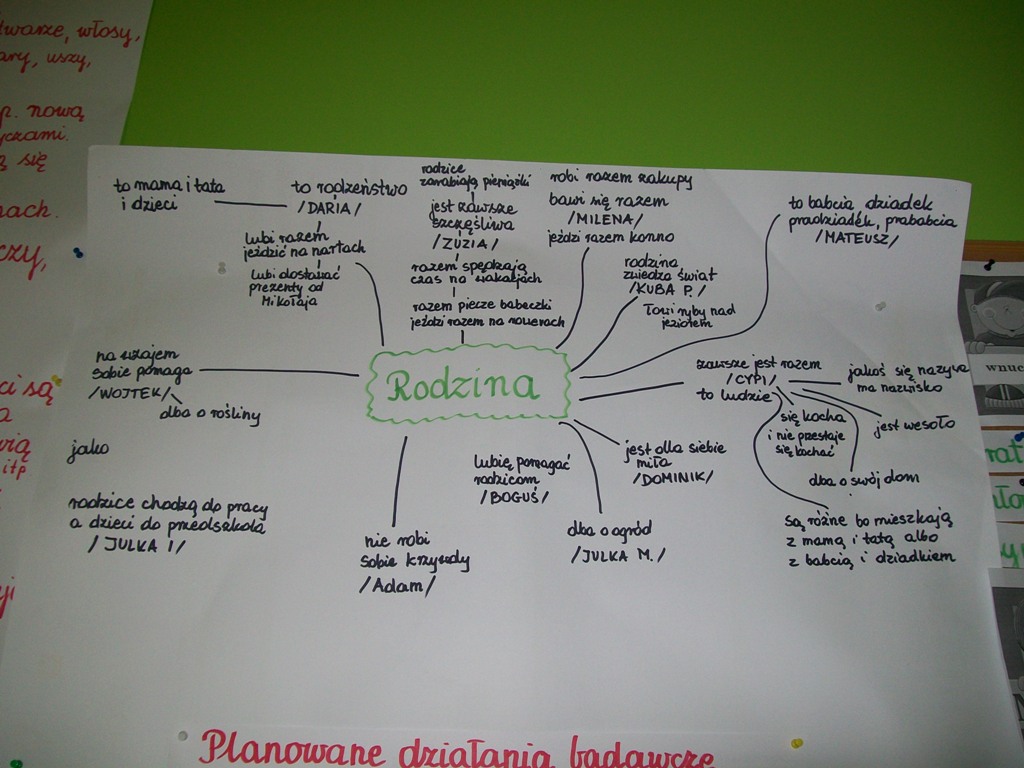 twarze, włosy,
uszy,
nową
się
to mama i tata
i dzieci
to rodzeństwo
/DARIA/
lubi razem
jeździć na nartach
lubi dostawać
prezenty od
Mikołaja
rodzice
zarabiają pieniążki
jest zawsze
szczęśliwa
/ZUZIA/
razem spędzają
czas na wakacjach
razem piecze babeczki
jeździ razem na rowerach
robi razem zakupy
bawi się razem
/MILENA/
jeździ razem konno
rodzina
zwiedza świat
/KUBA P./
łowi ryby nad
jeziorem
to babcia dziadek
pradziadek, prababcia
/MATEUSZ/
na wzajem
sobie pomaga
/WOJTEK/
dba o rośliny
Rodzina
zawsze jest razem
/CYPI/
to ludzie
jakoś się nazywa
ma nazwisko
jest wesoło
się kocha
i nie przestaje
się kochać
dba o swój dom
są różne bo mieszkają
z mamą i tatą albo
z babcią i dziadkiem
jako
rodzice chodzą do pracy
a dzieci do przedszkola
/JULKA I/
nie robi
sobie krzywdy
/Adam/
lubię pomagać
rodzicom
/BOGUŚ/
jest dla siebie
miła
/DOMINIK/
dba o ogród
/JULKA M./
ci są
itp
wnuc
Planowane działania badawcze